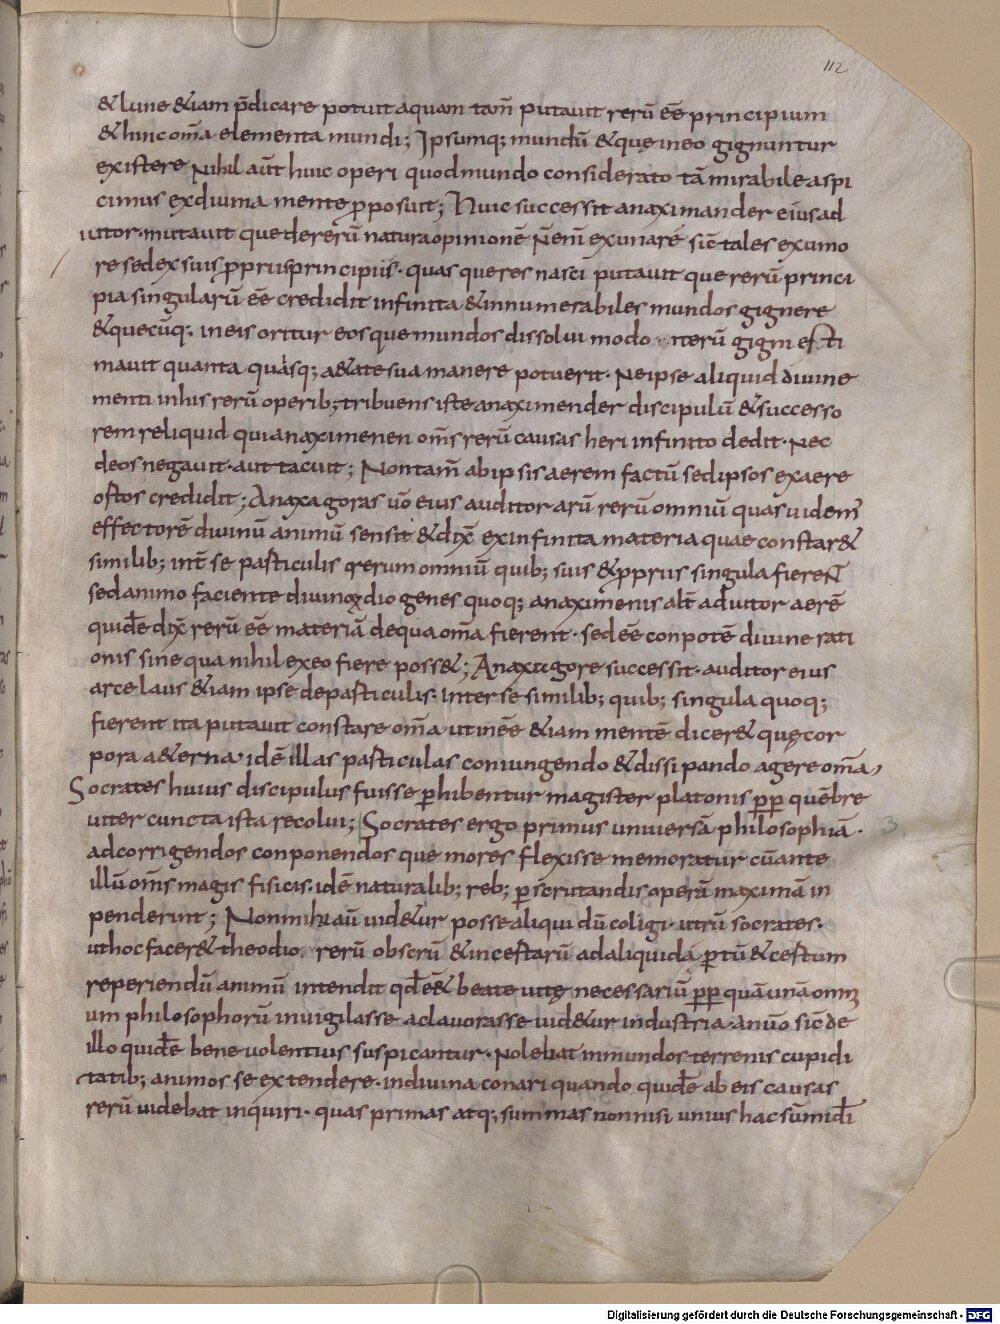 112
& lune &iam p̄dicare potuit aquam tam̄ putauit rerū eē principium
& hinc om̄a elementa mundi; Ipsumq; mundū & quę in eo gignuntur
existere Nihil aūt huic operi quod mundo considerato tā mirabile aspi
cimus ex diuina mente p̱posuit; Huic successit anaximander eius ad
iutor. mutauit que de rerū natura opinionē N̄ enī ex una re sic̄ tales ex umo
re sed ex suis p̱priis principiis. quas que res nasci putauit que rerū princi
pia singularū eē credidit infinita & innumerabiles mundos gignere
& quecūq; in eis oritur eos que mundos dissolui modo iterū gigni esti
mauit quanta quasq; a&ate sua manere potuerit. Ne ipse aliquid diuine
menti in his rerū operib; tribuens iste anaximender discipulū & successo
rem reliquid qui anaximenen om̄s rerū causas heri infinito dedit. Nec
deos negauit. aut tacuit; Non tam̄ ab ipsis aerem factū sed ipsos ex aere
ostos credidit; Anaxagoras uō eius auditor arū rerū omniū quas uidem̄
effectorē diuinū animū sensit & dix̄ ex infinita materia quae constar&
similib; int̄ se pasticulis rerum omniū quib; suis & p̱priis singula fierent
sed animo faciente diuino diogenes quoq; anaximenis alt̄ aduitor aerē
quidē dix̄ rerū eē materiā de qua om̄a fierent. sed eē conpotē diuine rati
onis sine qua nihil ex eo fiere poss&; Anaxagore successit. auditor eius
arcelaus &iam ipse de pasticulis. inter se similib; quib; singula quoq;
fierent ita putauit constare om̄a ut in eē &iam mentē dicer& quę cor
pora a&erna. idē illas pasticulas coniungendo & dissipando agere om̄a,
Socrates huius discipulus fuisse p̱hibentur magister platonis p̱p̱ quē bre
uiter cuncta ista recolui; Socrates ergo primus uniuersā philosophiā.
ad corrigendos conponendos que mores flexisse memoratur cū ante
illū om̄s magis fisicis. idē naturalib; reb; p̱scrutandis operā maximā in
penderint; Non mihi aū uid&ur posse aliqui dū coligi. utrū socrates.
ut hoc facer& theodio. rerū obscrū & incestarū ad aliquid a p̱tū & cestum
reperiendū animū intendit qd̄ e& beate uitę necessariū p̱p̱ quā unā omni
um philosophorū inuigilasse ac lauorasse uid&ur industria. an uō sic̄ de
illo quidē beneuolentius suspicantur. Nolebat inmundos terrenis cupidi
tatib; animos se extendere. in diuina conari quando quidē ab eis causas
rerū uidebat inquiri. quas primas atq; summas non nisi unius hac sūmi dī
3
Digitalisierung gefördert durch die Deutsche Forschungsgemeinschaft - DFG